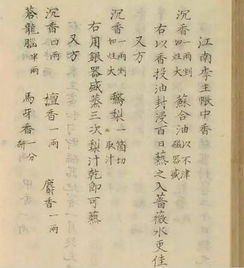 江南李主帳中香
沉香一兩剉如炷大 蘇合油以不津磁器盛
右以香投油封浸百日爇之入薔薇水更佳
又方
沉香一兩剉如炷大 鵞梨一箇切取汁
右用銀器盛蒸三次梨汁乾即可爇
又方
沉香四兩 檀香一兩 麝香一兩
蒼龍腦半兩 馬牙香一分研